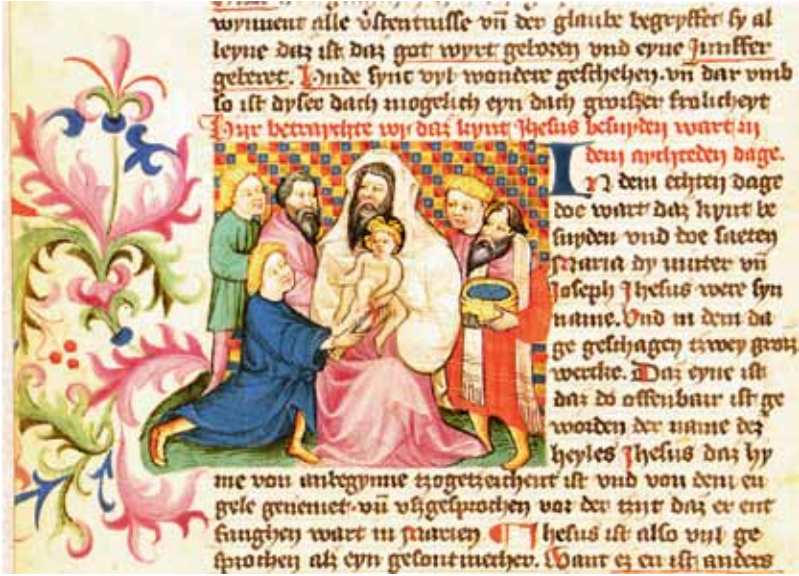 wynnent alle v̊stentnisse vn̄ der glaube begryffet sy al
leyne daz ist daz got wyrt geboren vnd eyne Junffer
geberet. Unde synt vyl wondere geschehen. vn̄ dar vmb
so ist dyser dach mogelich eyn dach groiszer frolicheyt
Hyr betrachte wy daz kynt Jhesus besnyden wart in
dem achteden dage.
In dem echten dage
doe wart daz kynt be
snyden vnd doe saeten
Maria dy mutter vn̄
Joseph Jhesus were syn
name. Vnd in dem da
ge geschagen tzwey groiz
wercke. Daz eyne ist
daz do offenbair ist ge
worden der name dez
heyles Jhesus daz hy
me von anbegynne tzogetzeichent ist vnd von dem en
gele genennet. vn̄ vszgesprochen vor der tzyt daz er ent
fanghen wart in Marien Jhesus ist also vyl ge
sprochen alz eyn gesontmecher. Want ez en ist anders